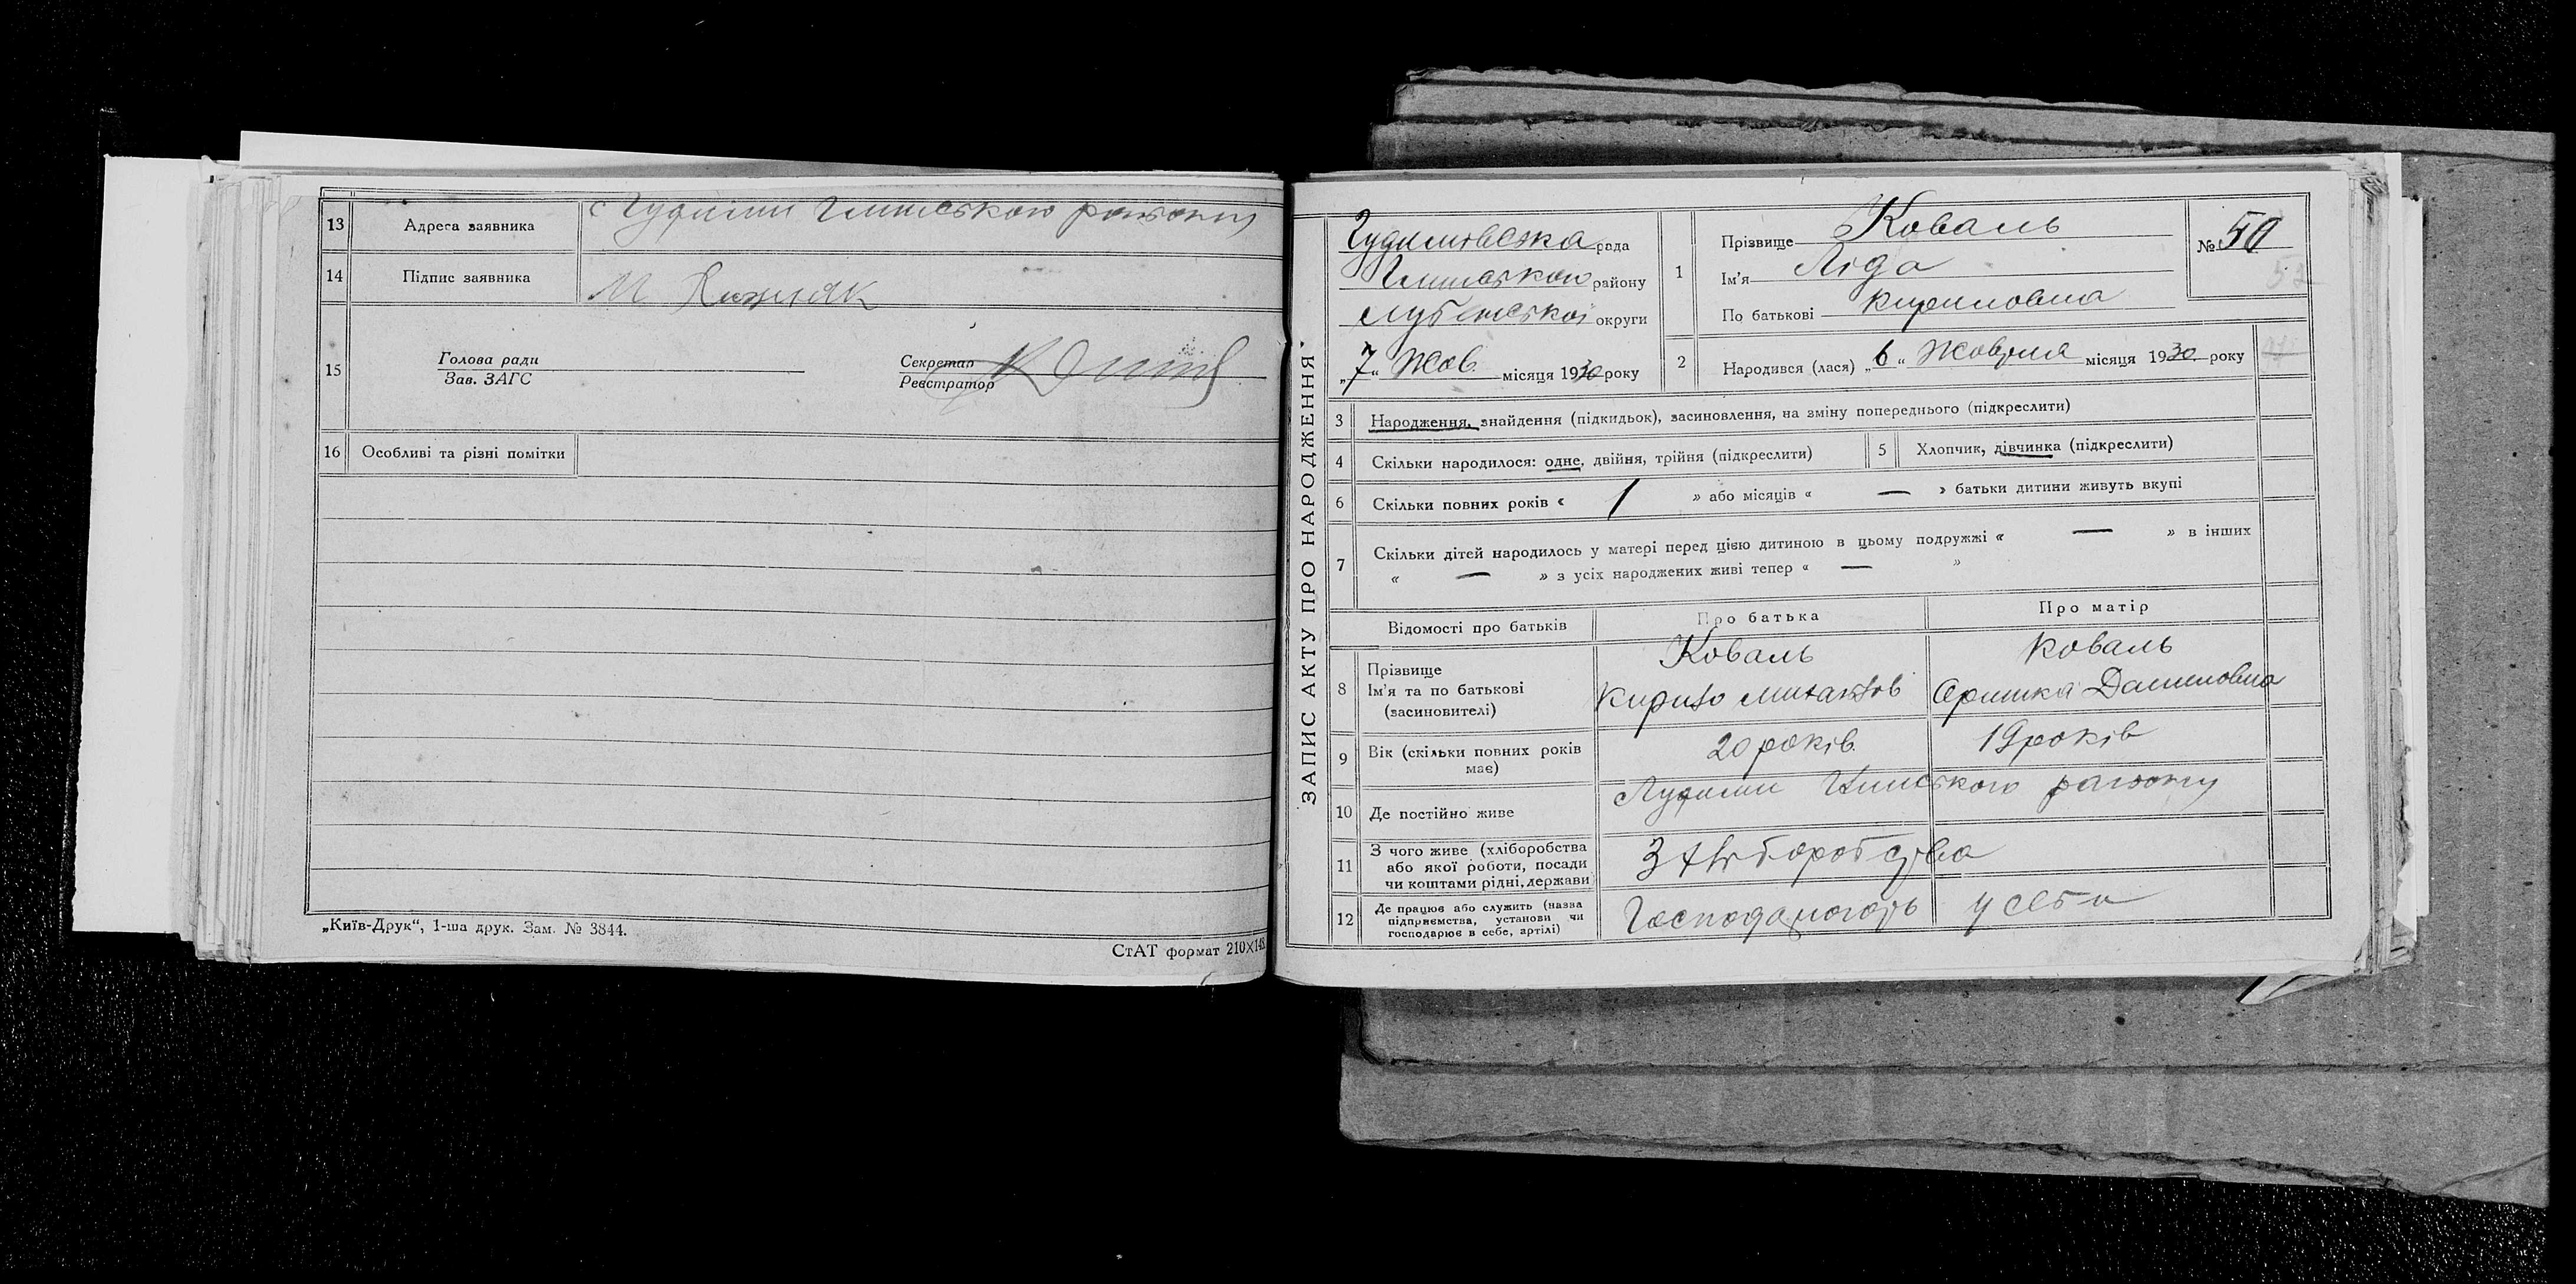 13 Адреса заявника с Гудими Глинського району
14 Підпис заявника М
15 Голова ради
Зав. ЗАГС
Секретар
Реєстратор
16 Особливі та різні помітки
„Київ-Друк“, 1-ша друк. Зам. № 3844.
СтАТ формат 210X148
ЗАПИС АКТУ ПРО НАРОДЖЕННЯ
Гудимівська рада
Глинського району
Лубенської округи
„7“ Жов. місяця 1930 року
1 Прізвище Коваль
Ім'я Ліда
По батькові Кириловна
№ 50
52
2 Народився (лася) „6“ Жовтня місяця 1930 року
3 Народження, знайдення (підкидьок), засиновлення, на зміну попереднього (підкреслити)
4 Скільки народилося: одне, двійня, трійня (підкреслити)
5 Хлопчик, дівчинка (підкреслити)
6 Скільки повних років « 1 » або місяців « — » батьки дитини живуть вкупі
7 Скільки дітей народилось у матері перед цією дитиною в цьому подружжі « — » в інших
« — » з усіх народжених живі тепер « — »
Відомості про батьків Про батька Про матір
8 Прізвище Коваль Коваль
Ім'я та по батькові Кирило Оришка Даниловна
(засиновителі)
9 Вік (скільки повних років має) 20 років 19 років
10 Де постійно живе Гудими Глинського району
11 З чого живе (хліборобства
або якої роботи, посади
чи коштами рідні, держави
З хліборобства
12 Де працює або служить (назва
підприємства, установи чи
господарює в себе, артілі)
Господарюють у себе